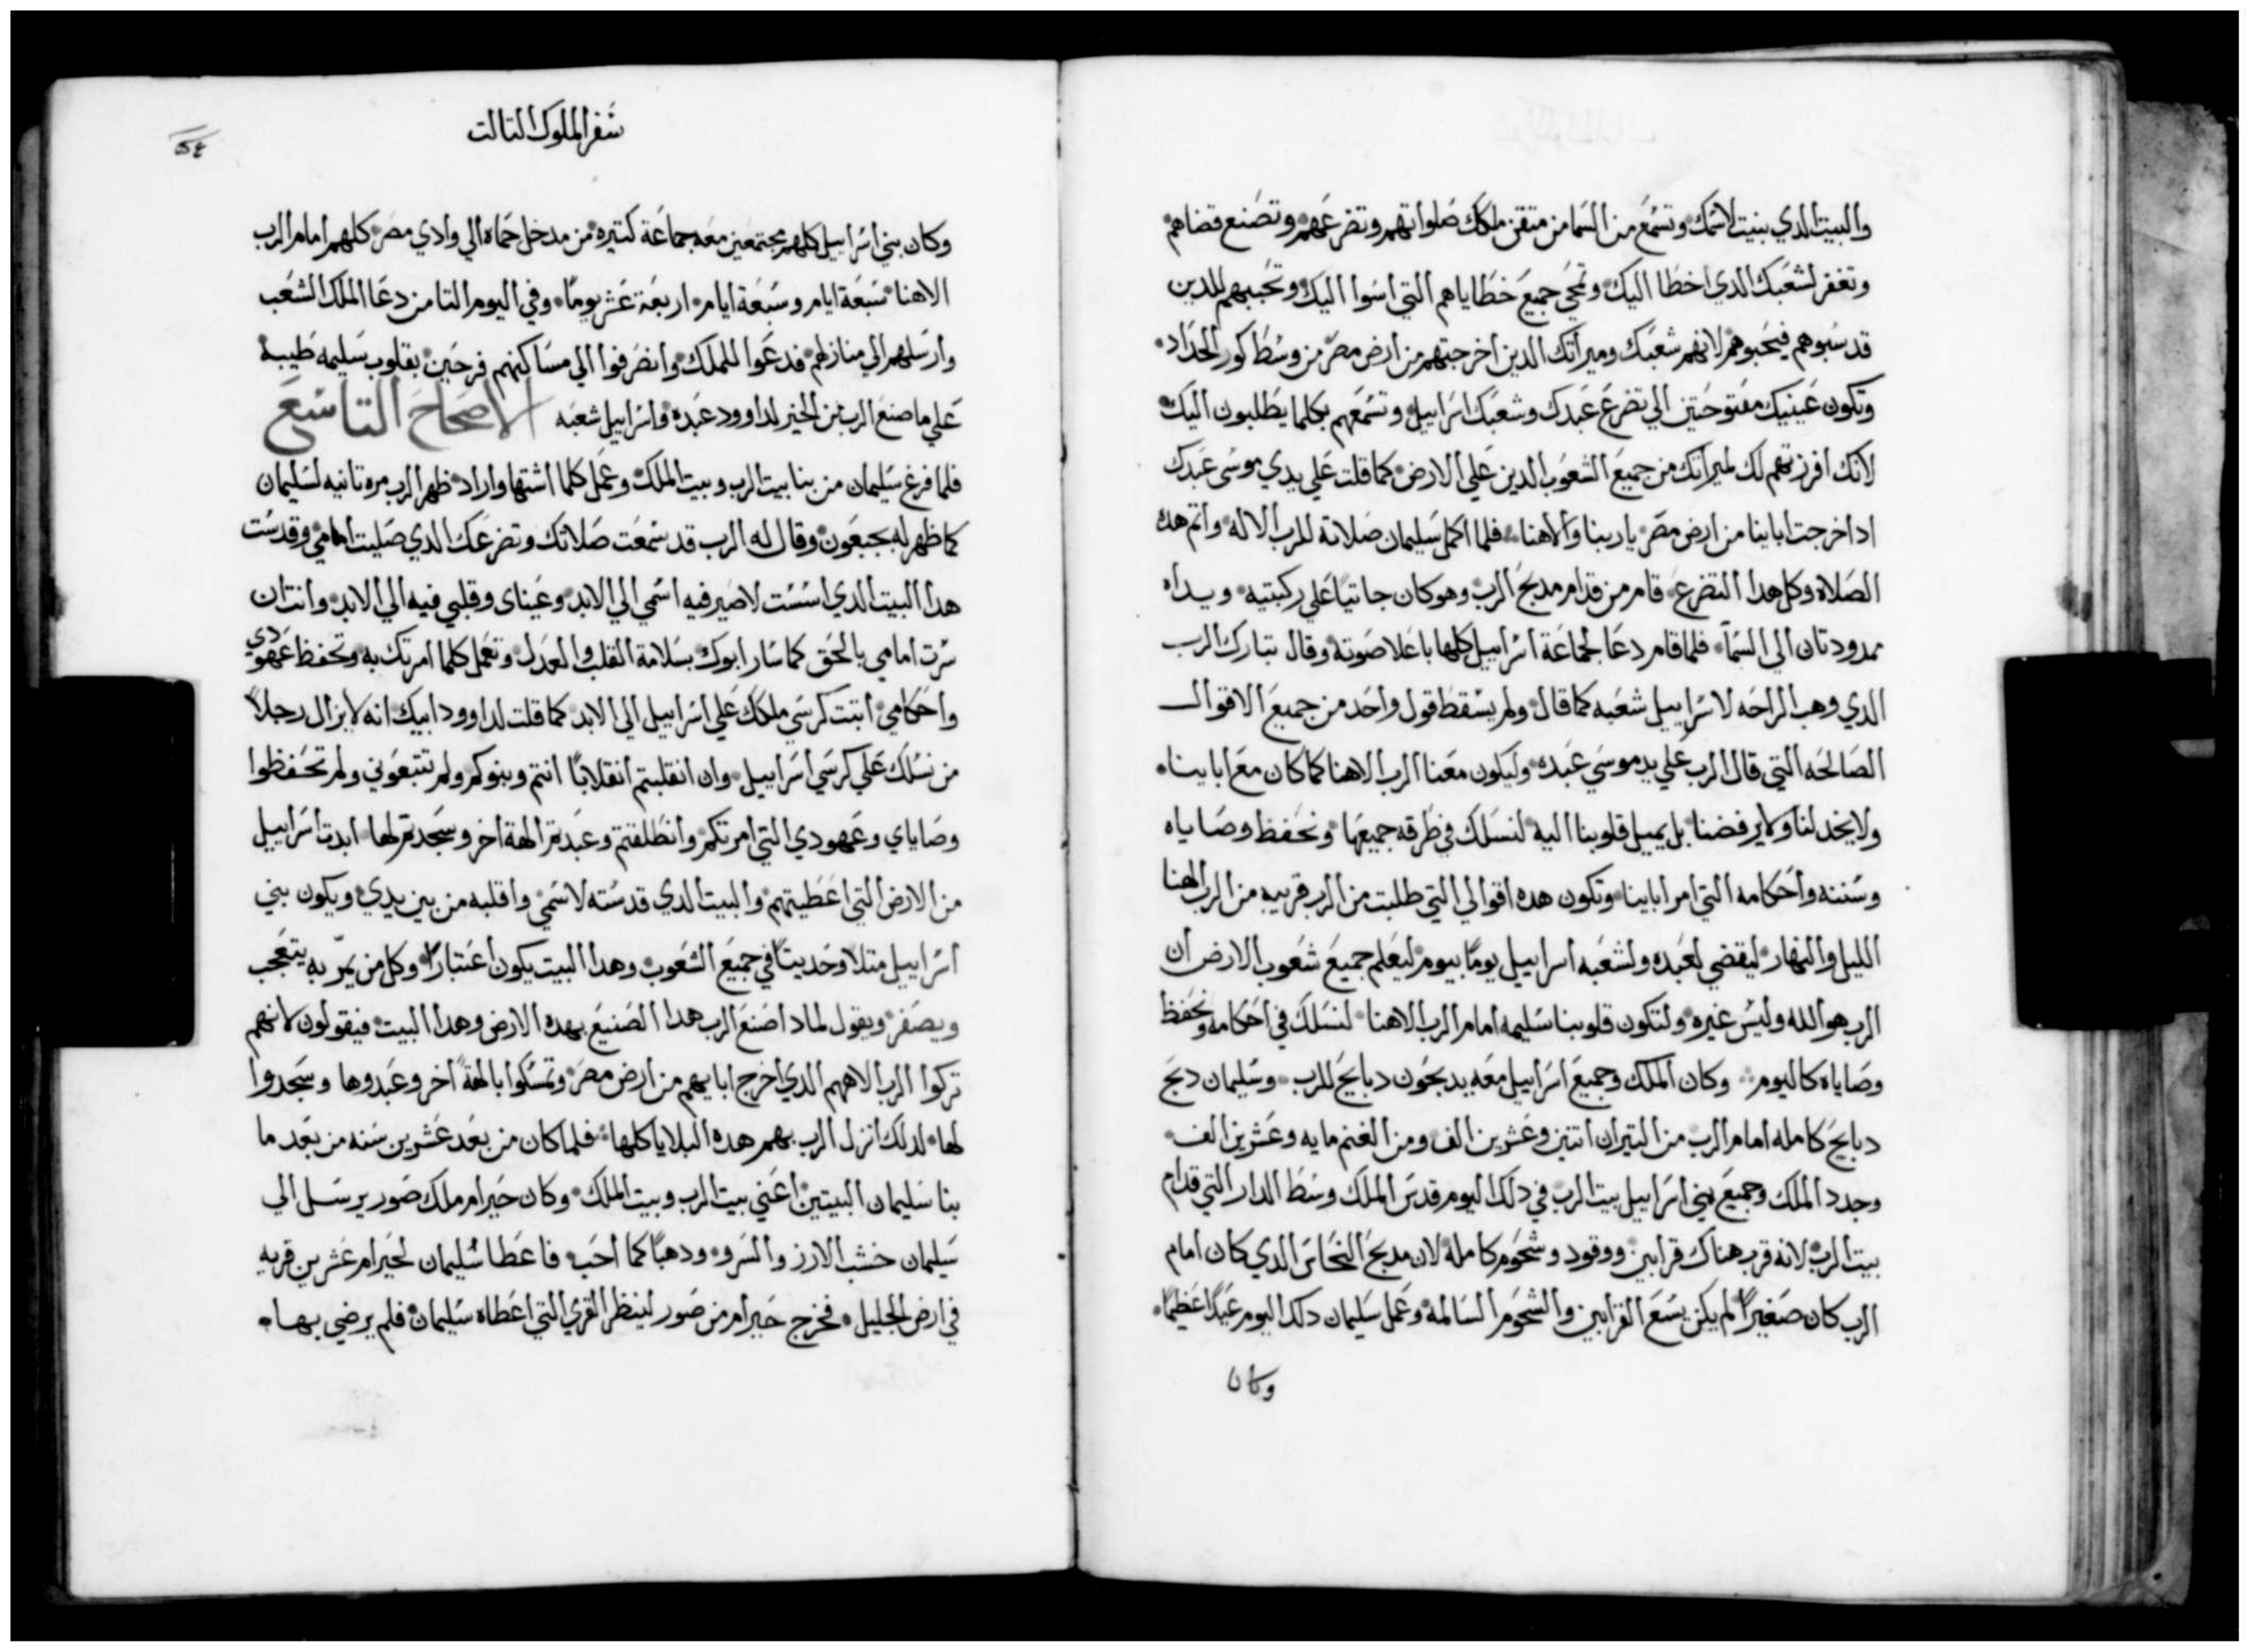 والبيت الدي بنيت لاسمك وتسمع من السما من متقن ملكك صلواتهم وتضرعهم وتصنع قضاهم
وتغفر لشعبك الدي اخطا اليك وتمحي جميع خطاياهم التي اسوا اليك وتحببهم للدين
قد سبوهم فيحبوهم لانهم شعبك وميراتك الدين اخرجتهم من ارض مصر من وسط كور الحداد
وتكون عينيك مفتوحتين الي تضرع عبدك وشعبك اسراييل وتسمعهم بكلما يطلبون اليك
لانك افرزتهم لك لميراتك من جميع الشعوب الدين علي الارض كما قلت علي يدي موسى عبدك
اد اخرجت اباينا من ارض مصر يا ربنا والاهنا فلما اكمل سليمان صلاته للرب الاله واتم هده
الصلاه وكل هدا التضرع قام من قدام مدبح الرب وهو كان جاتيا علي ركبتيه ويداه
ممدودتان الي السما فلما قام دعا لجماعة اسراييل كلها باعلا صوته وقال تبارك الرب
الدي وهب الراحه لاسراييل شعبه كما قال ولم يسقط قول واحد من جميع الاقوال
الصالحه التي قال الرب علي يد موسي عبده وليكون معنا الرب الاهنا كما كان مع اباينا
ولا يخدلنا ولا يرفضنا بل يميل قلوبنا اليه لنسلك في طرقه جميعها ونحفظ وصاياه
وسننه واحكامه التي امر اباينا وتكون هده اقوالي التي طلبت من الرب قريبه من الرب الهنا
الليل والنهار ليقضي لعبده ولشعبه اسراييل يوما بيوم ليعلم جميع شعوب الارض ان
الرب هو الله وليس غيره ولتكون قلوبنا سليمه امام الرب الاهنا لنسلك في احكامه ونحفظ
وصاياه كاليوم وكان الملك وجميع اسراييل معه يدبحون دبايح للرب وسليمان دبح
دبايح كامله امام الرب من التيران اتنين وعشرين الف ومن الغنم مايه وعشرين الف
وجدد الملك وجميع بني اسراييل بيت الرب في دلك اليوم قدس الملك وسط الدار التي قدام
بيت الرب لانه قرب هناك قرابين ووقود وشحوم كامله لان مدبح النحاس الدي كان امام
الرب كان صغيرا لم يكن يسع القرابين والشحوم السالمة وعمل سليمان دلك اليوم عيدا عظيما
وكان
سفر الملوك التالت
وكان بني اسراييل كلهم مجتمعين معه جماعة كتيره من مدخل حماه الي وادي مصر كلهم امام الرب
الاهنا سبعة ايام وسبعة ايام اربعة عشر يوما وفي اليوم التامن دعا الملك الشعب
وارسلهم الي منازلهم فدعوا للملك وانصرفوا الي مساكنهم فرحين بقلوب سليمه طيبة
علي ما صنع الرب من الخير لداوود عبده واسراييل شعبه الاصحاح التاسع
فلما فرغ سليمان من بنا بيت الرب وبيت الملك وعمل كلما اشتها واراد ظهر الرب مره تانيه لسليمان
كما ظهر له بجبعون وقال له الرب قد سمعت صلاتك وتضرعك الدي صليت امامي وقدست
هدا البيت الدي اسست لاصير فيه اسمي الي الابد وعيناى وقلبي فيه الي الابد وانت ان
سرت امامي بالحق كما سار ابوك بسلامة القلب والعدل وتعمل كلما امرتك به وتحفظ عهودي
واحكامي اتبت كرسي ملكك علي اسراييل الي الابد كما قلت لداوود ابيك انه لا يزال رجلا
من نسلك علي كرسي اسراييل وان انقلبتم انقلابا انتم وبنوكم ولم تتبعوني ولم تحفظوا
وصاياي وعهودي التي امرتكم وانطلقتم وعبدتم الهة اخر وسجدتم لها ابدت اسراييل
من الارض التي اعطيتهم والبيت الدي قدسته لاسمي واقلبه من بين يدي ويكون بني
اسراييل متلا وحديتا في جميع الشعوب وهدا البيت يكون اعتبارا وكل من يمر به يتعجب
ويصفر ويقول لمادا صنع الرب هدا الصنيع بهده الارض وهدا البيت فيقولون لانهم
تركوا الرب الاههم الدي اخرج ابايهم من ارض مصر وتمسكوا بالهة اخر وعبدوها وسجدوا
لها لدلك انزل الرب بهم هده البلايا كلها فلما كان من بعد عشرين سنه من بعد ما
بنا سليمان البيتين اعني بيت الرب وبيت الملك وكان حيرام ملك صور يرسل الي
سليمان خشب الارز والسرو ودهبا كما احب فاعطا سليمان لحيرام عشرين قريه
في ارض الجليل فخرج حيرام من صور لينظر القري التي اعطاه سليمان فلم يرضي بها